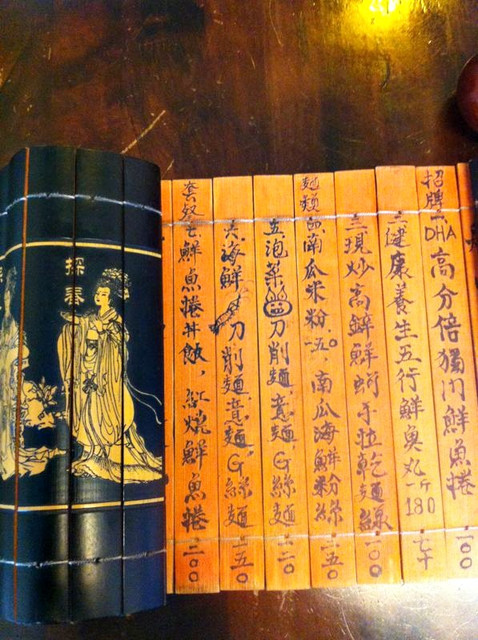 招牌一DHA高分倍獨門鮮魚捲 一〇〇
二健康養生五行鮮魚丸一斤180 七十
三現炒高鋅鮮蚵手拉乾麵線 一〇〇
麵類 南瓜米粉 一五〇 南瓜海鮮粉絲 一五〇
五泡菜 刀削麵 意麵 G絲麵 一二〇
海鮮 刀削麵 意麵 G絲麵 一五〇
套餐 鮮魚捲丼飯，紅燒鮮魚捲 二〇〇
探春